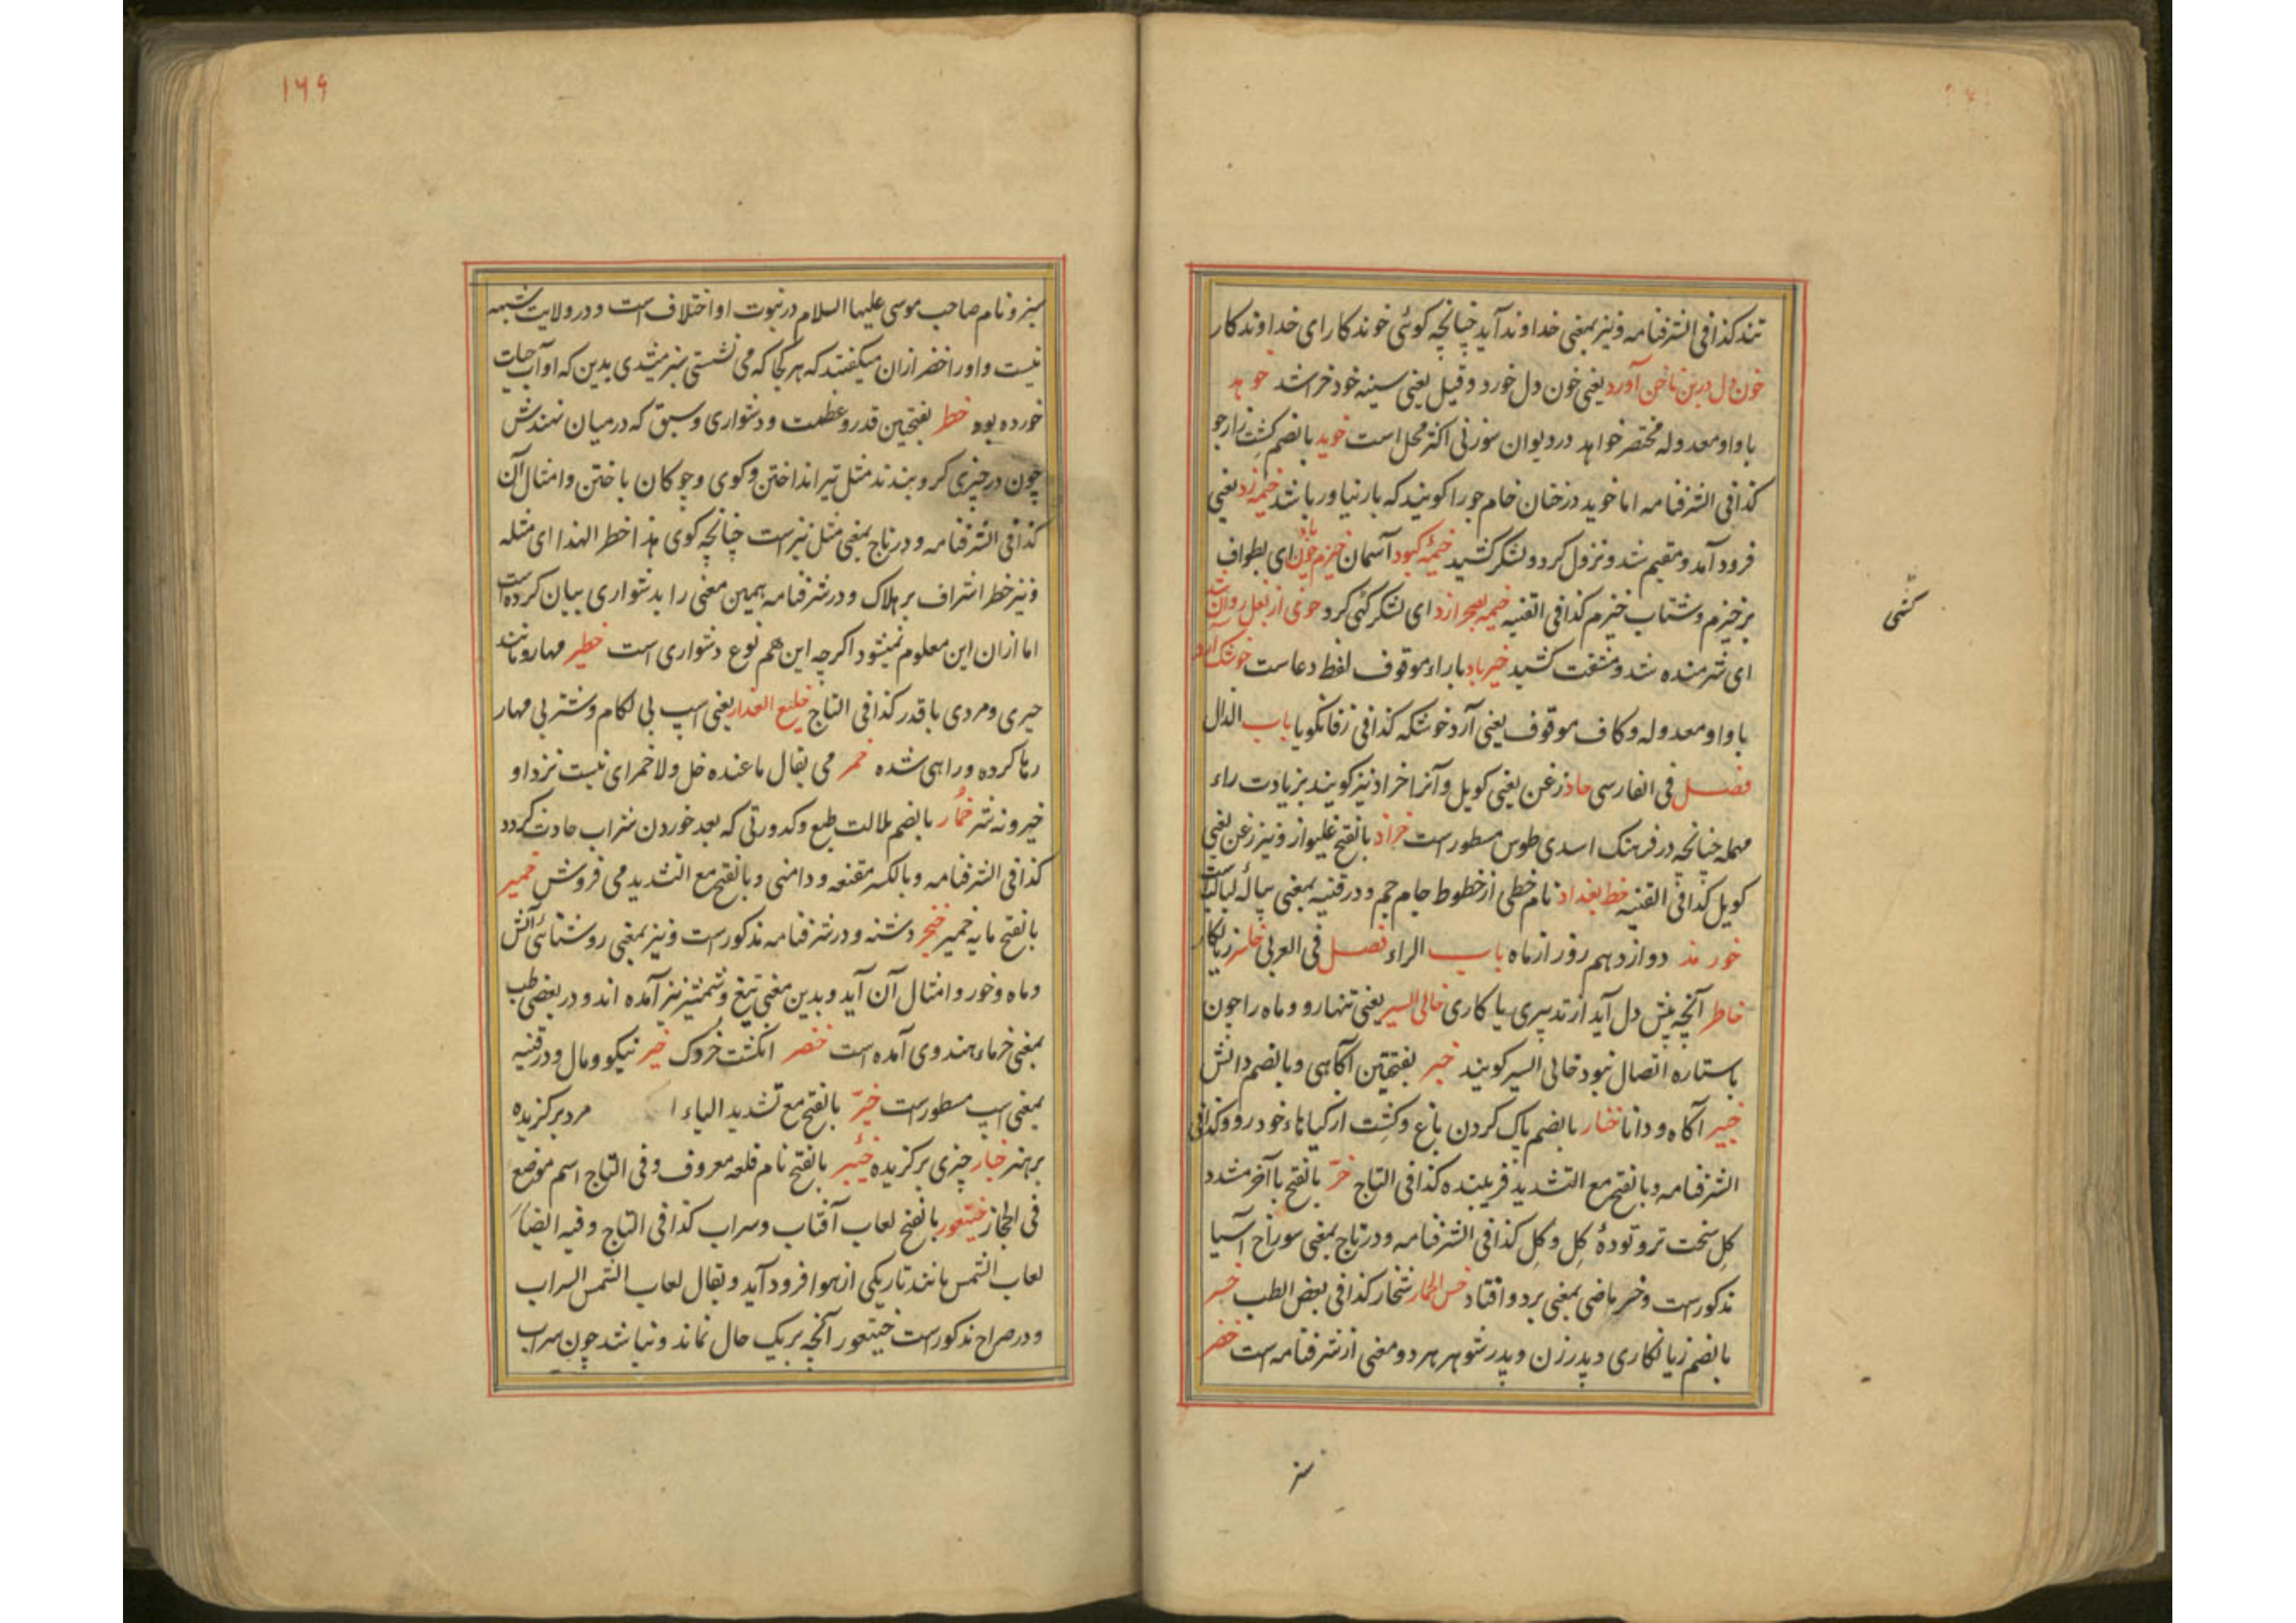 تند کذا فی الشرفنامه و نیز بمعنی خداوند آید چنانچه کوئی خوندکار ای خداوندکار
خون دل در بن ناخن آورد یعنی خون دل خورد و قیل یعنی سینه خود خراشد خوهد
با واو معدوله مختصر خواهد در دیوان سوزنی اکثر محل است خوید بالضم کشت زار جو
کذا فی الشرفنامه اما خوید درختان خام جو را کویند که بار نیاورد باشد خیمه زد یعنی
فرود آمد و مقیم شد و نزول کرد و لشکر کشید خیمهٔ کبود آسمان خیزم ای بطواف
برخیزم و شتاب خیزم کذا فی القنیه خیمه بصحرا زد ای لشکر کشی کرد خوی از بغل روان شد
ای شرمنده شد و مشقت کشید خیرباد باراء موقوف لفظ دعاست خوشک آرد
با واو معدوله و کاف موقوف یعنی آرد خوشکه کذا فی زفانکویا باب الذال
فصل فی الفارسی خاذ زغن یعنی کویل و آنرا خراذ نیز کویند بزیادت راء
مهمله چنانچه در فرهنک اسدی طوس مسطورست خراذ بالفتح غلیواز و نیز زغن یعنی
کویل کذا فی القنیه خط بغداذ نام خطی از خطوط جام جم و در قنیه بمعنی پیاله لبالبست
خورمذ دوازدهم روز از ماه باب الراء فصل فی العربی خاسر زیانکار
خاطر آنچه پیش دل آید از تدبیری یا کاری خالی السیر یعنی تنهارو و ماه را چون
باستاره اتصال نبود خالی السیر کویند خبر بفتحتین آکاهی و بالضم دانش
خبیر آکاه و دانا ختار بالضم پاک کردن باغ و کشت از کیاهاء خودرو و کذا فی
الشرفنامه و بالفتح مع التشدید فریبنده کذا فی التاج خرّ بالفتح باآخر مشدد
کل سخت تر و تودهٔ کل و کل کذا فی الشرفنامه و در تاج بمعنی سوراخ آسیا
مذکورست و خر ماضی بمعنی برد و افتاد خس الحمار شنخار کذا فی بعض الطب خسر
بالضم زیانکاری و پدر زن و پدر شوهر هر دو معنی از شرفنامه است خضر
کشی
سبز
۱۶۹
سبز و نام صاحب موسی علیهما السلام در نبوت او اختلاف است و در ولایت شبهه
نیست و او را خضر ازان میکفتند که هر کجا که می نشستی سبز میشدی بدین که او آب حیات
خورده بود خطر بفتحتین قدر و عظمت و دشواری و سبق که درمیان نهندش
چون در چیزی کرو بندند مثل تیر انداختن و کوی و چوکان باختن و امثال آن
کذا فی الشرفنامه و در تاج بمعنی مثل نیزست چنانچه کوی هذا خطر لهذا ای مثله
و نیز خطر اشراف بر هلاک و در شرفنامه همین معنی را بدشواری بیان کرده است
اما ازان این معلوم نمیشود اکرچه این هم نوع دشواری است خطیر مهار و مانند
چیزی و مردی باقدر کذا فی التاج خلیع العذار یعنی اسپ بی لکام و شتر بی مهار
رها کرده و راهی شده خمر می یقال ما عنده خل ولا خمر ای نیست نزد او
خیر و نه شر خمار بالضم ملالت طبع و کدورتی که بعد خوردن شراب حادث کردد
کذا فی الشرفنامه و بالکسر مقنعه و دامنی و بالفتح مع التشدید می فروش خمیر
بالفتح مایه خمیر خنجر دشنه و در شرفنامه مذکورست و نیز بمعنی روشنائی آتش
و ماه و خور و امثال آن آید و بدین معنی تیغ و شمشیر نیز آمده اند و در بعضی طب
بمعنی خرماء هندوی آمده است خنصر انکشت خردک خیر نیکو و مال و در قنیه
بمعنی اسپ مسطورست خیّر بالفتح مع تشدید الیاء مرد برکزیده
برهنر خیار چیزی برکزیده خیبر بالفتح نام قلعه معروف و فی التاج اسم موضع
فی الحجاز خیتعور بالفتح لعاب آفتاب و سراب کذا فی التاج و فیه ایضاً
لعاب الشمس مانند تاریکی از هوا فرود آید و یقال لعاب الشمس السراب
و در صراح مذکورست خیتعور آنچه بریک حال نماند و نباشد چون سراب